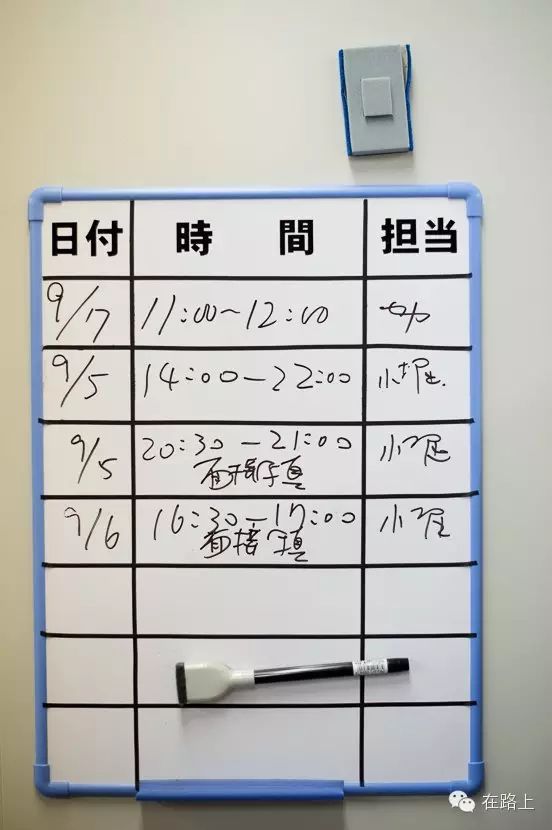 日付 時間 担当
9/17 11:00~12:00
9/5 14:00-22:00 小堀
9/5 20:30-21:00 小堀
面接写真
9/6 16:30-17:00 小堀
面接写真
在路上